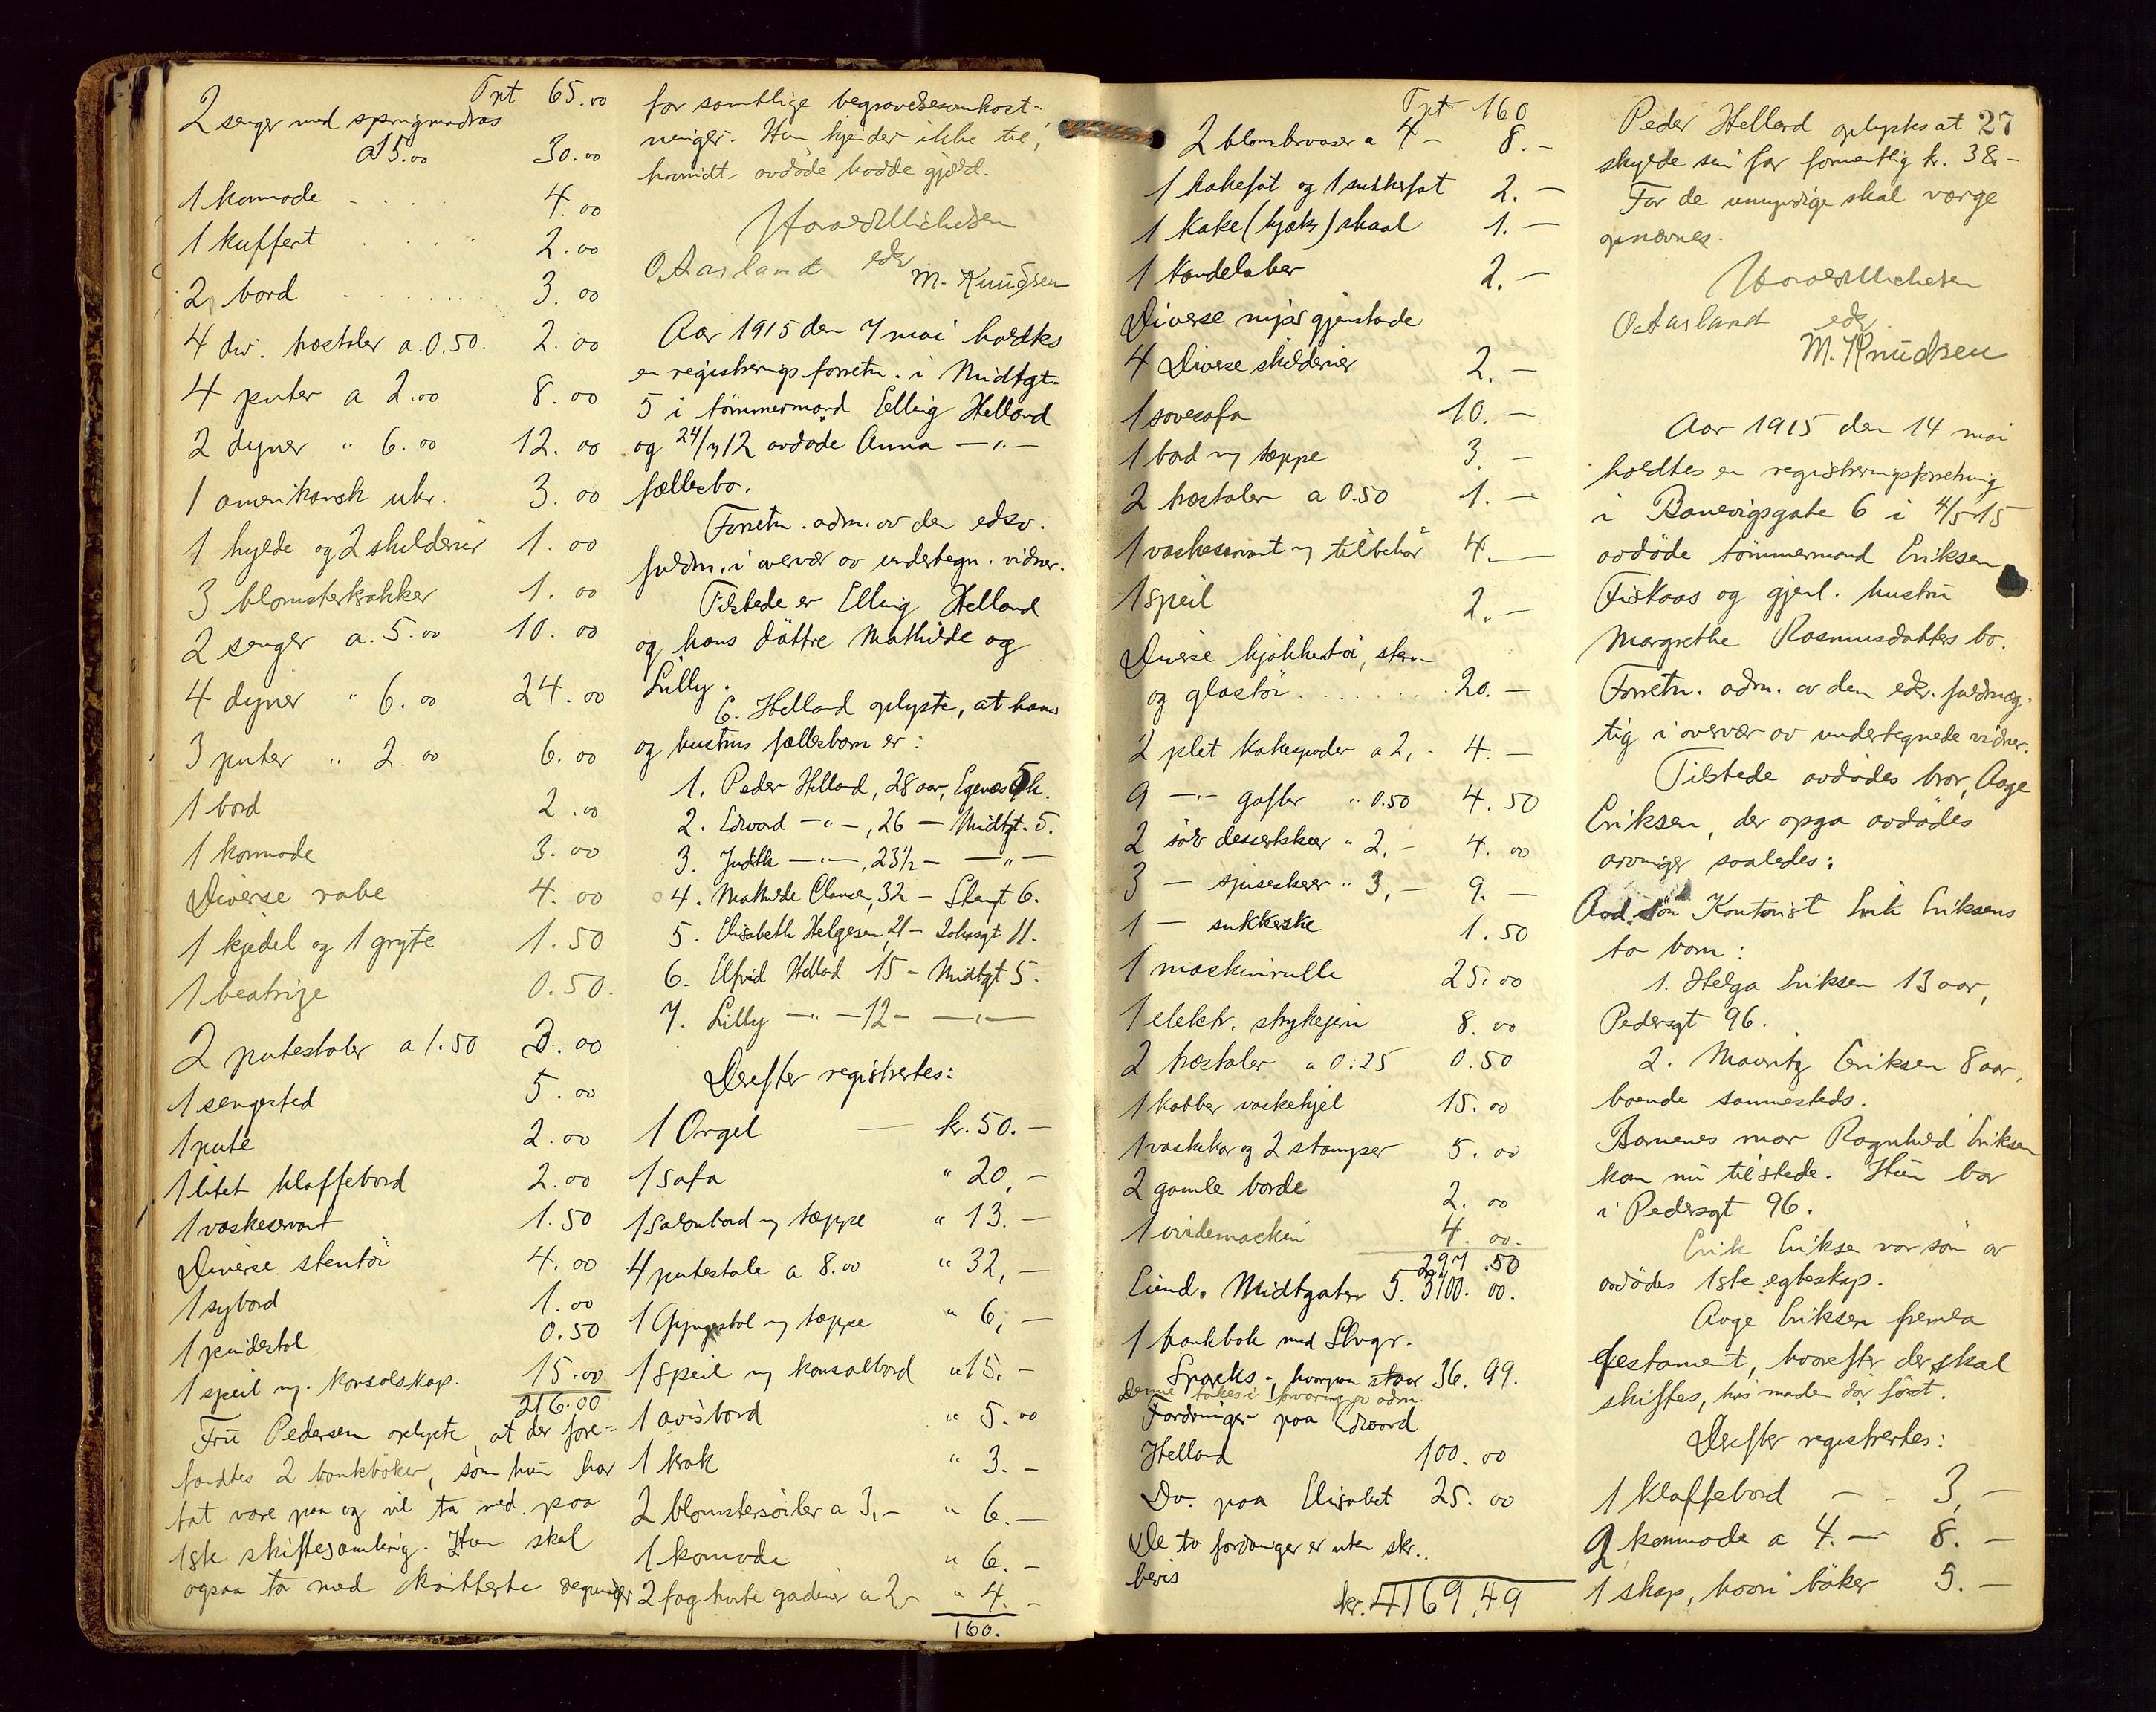 Trpt 65.00
2 senger med springmadras
a 15.00 30.00
1 komode . . . . 4.00
1 kuffert . . . . 2.00
2 bord . . . . . . . 3.00
4 div. træstoler a 0.50. 2.00
4 puter a 2.00 8.00
2 dyner " 6.00 12.00
1 amerikansk uhr. 3.00
1 hylde og 2 skilderier 1.00
3 blomsterkrukker 1.00
2 senger a. 5.00 10.00
4 dyner " 6.00 24.00
3 puter " 2.00 6.00
1 bord 2.00
1 komode 3.00
Diverse 4.00
1 kjedel og 1 gryte 1.50
1 0.50.
2 putestoler a 1.50 3.00
1 sengested 5.00
1 pute 2.00
1 litet klaffebord 2.00
1 vaskeservant 1.50
Diverse stentöi 4.00
1 sybord 1.00
1 pindestol 0.50
1 speil m. konsolskap. 15.00
216.00
Fru Pedersen oplyste, at der fore-
fandtes 2 bankböker, som hun har
tat vare paa og vil ta med paa
1ste skiftesamling. Hun skal
ogsaa ta med kvitterte regninger
for samtlige begravelsesomkost-
ninger. Hun kjender ikke til,
hvorvidt avdöde hadde gjæld.
Harald Michelsen
eds
O. Aarland M. Knudsen
Aar 1915 den 7 mai holdtes
en registreringsforretn. i Midtgt.
5 i tömmermand Elling Helland
og 24/7 12 avdöde Anna —"—
fællesbo.
Forretn. adm. av den edsv.
fuldm. i overvær av undertegn. vidner.
Tilstede er Elling Helland
og hans döttre Mathilde og
Lilly.
E. Helland oplyste, at hans
og hustrus fællesbarn er:
1. Peder Helland, 28 aar, Egenæs
2. Edvard —"—, 26 — Midtgt. 5.
3. Judith —"—, 23½ — —"—
4. Mathilde Clausen, 32 — 6.
5. Elisabeth Helgesen, 21 — 11.
6. Elfrid Helland 15 — Midtgt 5.
7. Lilly —"— 12 — —"—
Derefter registrertes:
1 Orgel — kr. 50.—
1 sofa " 20,—
1 salonbord m tæppe " 13.—
4 putestole a 8.00 " 32,—
1 Gyngestol m tæppe " 6,—
1 speil m konsolbord " 15.—
1 avisbord " 5.00
1 krak " 3.—
2 blomstersöiler a 3,— " 6.—
1 komode " 6.—
2 fag hvite gardiner a 2— " 4.—
160.
Trpt 160
2 blomstervaser a 4— 8.—
1 kakefat og 1 sukkerfat 2.—
1 kake (kjæks) skaal 1.—
1 Kandelaber 2.—
Diverse nipsgjenstande
4 Diverse skilderier 2.—
1 sovesofa 10.—
1 bord m tæppe 3.—
2 træstoler a 0.50 1.—
1 vaskeservant m tilbehör 4.—
1 speil 2.—
Diverse kjökkentöi, sten-
og glastöi . . . . . . . . 20.—
2 plet kakespader a 2,— 4.—
9 —"— gafler " 0.50 4.50
2 sölv dessertskeer " 2,— 4.00
3 — spiseskeer " 3,— 9.—
1 — sukkerske 1.50
1 maskinrulle 25.00
1 elektr. strykejern 8.00
2 træstoler a 0:25 0.50
1 kobber vaskekjel 15.00
1 vaskekar og 2 stamper 5.00
2 gamle borde 2.00
1 vridemaskin 4.00.
297.50
Eiend. Midtgaten 5. 3700.00.
1 bankbok med Stvgr.
Sparek., hvorpaa staar 36.99.
Denne tokes i forvaring av adm.
Fordringer paa Edvard
Helland 100.00
Do. paa Elisabet 25.00
De to fordringer er uten skr.
bevis
kr. 4169,49
27
Peder Helland oplystes at
skylde sin far formentlig kr. 38.—
For de umyndige skal værge
opnævnes.
Harald Michelsen
eds
O. Aarland M. Knudsen
Aar 1915 den 14 mai
holdtes en registreringsforretning
i Banevigsgate 6 i 4/5 15
avdöde tömmermand Eriksen
Fiskaas og gjenl. hustru
Margrethe Rasmusdatters bo.
Forretn. adm. av den eds. fuldmæg-
tig i overvær av undertegnede vidner.
Tilstede avdödes bror, Aage
Eriksen, der opga avdödes
arvinger saaledes:
Avd. sön Kontorist Erik Eriksens
to barn:
1. Helga Eriksen 13 aar,
Pedersgt 96.
2. Mauritz Eriksen 8 aar,
boende sammesteds.
Barnenes mor Ragnhild Eriksen
kom nu tilstede. Hun bor
i Pedersgt 96.
Erik Eriksen var sön av
avdödes 1ste egteskap.
Aage Eriksen fremla
testament, hvorefter der skal
skiftes, hvis manden dör först.
Derefter registrertes:
1 Klaffebord — — 3,—
2 kommode a 4.— 8.—
1 skap, hvori böker 5.—